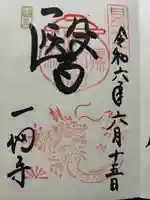 令和六年六月十五日
醫
一畑寺